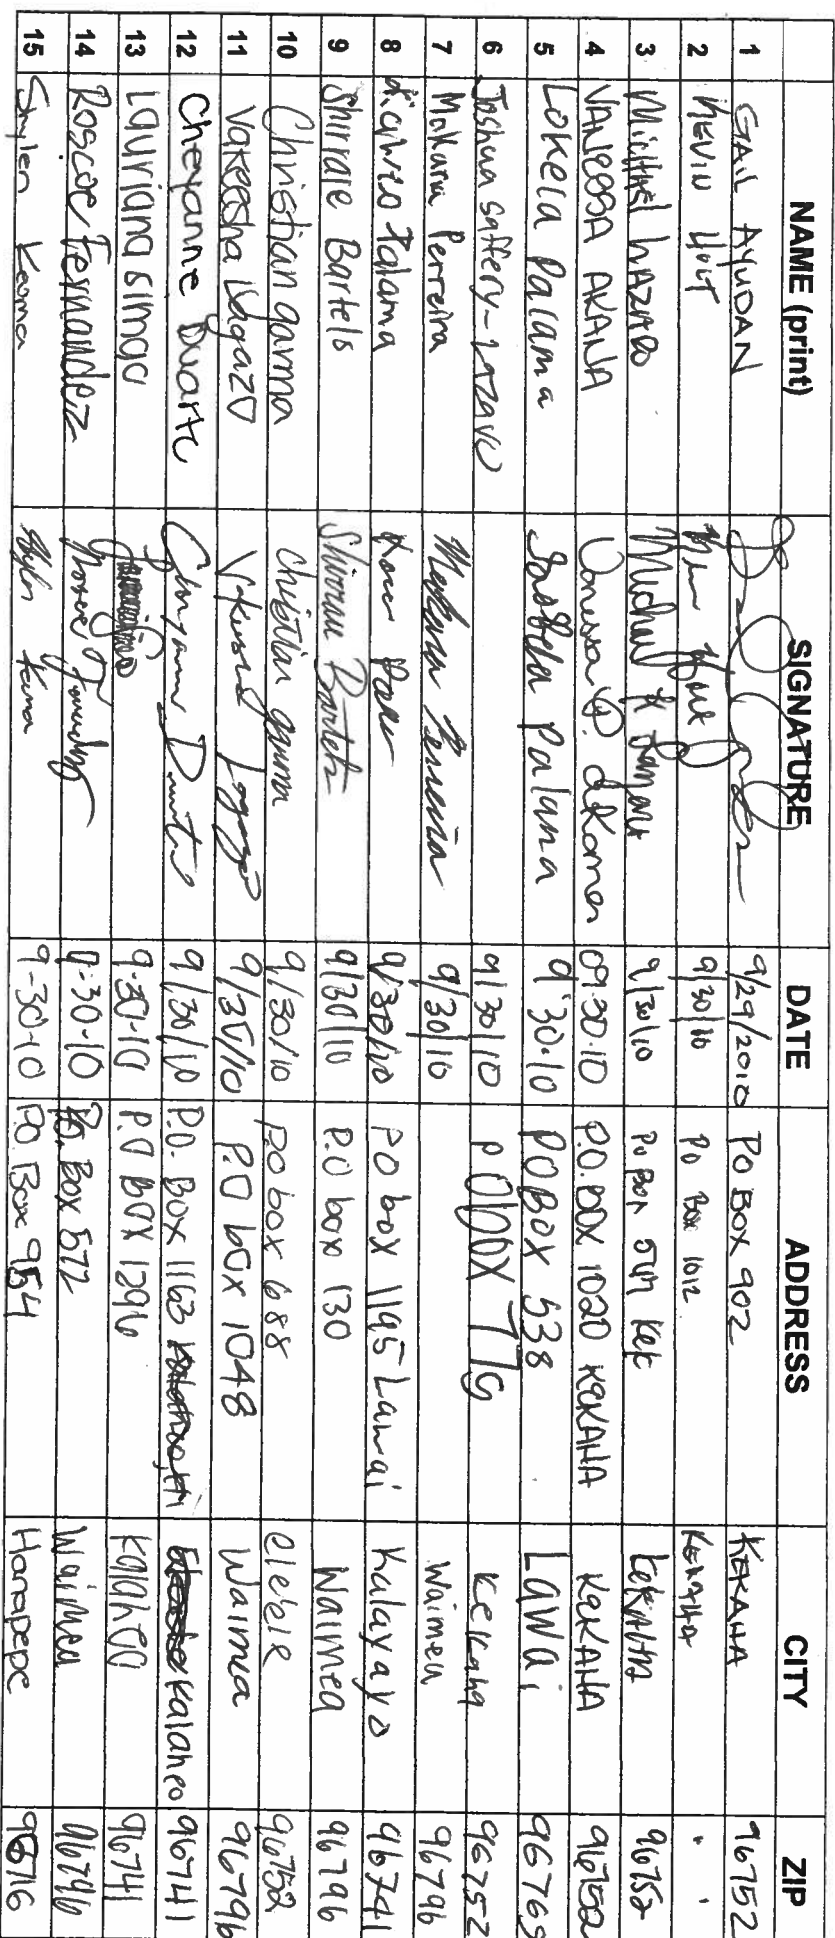 NAME (print) SIGNATURE DATE ADDRESS CITY ZIP
1 GAIL AYUDAN 9/29/2010 PO BOX 902 KEKAHA 96752
2 KEVIN HOLT 9/30/10 PO Box 1012 KEKAHA "
3 Michael LAZARO Michael 9/30/10 PO Box Kek KEKAHA 96752
4 VANESSA AKANA Vanessa P. Akana 09.30.10 P.O. BOX 1020 KEKAHA KEKAHA 96752
5 Lokela Palama Palama 9.30.10 PO BOX 538 LAWAi 96765
6 Joshua Saffery-Lazaro 9/30/10 P O box 779 Kekaha 96752
7 Makana Perreira Makana Perreira 9/30/10 Waimea 96796
8 Kalama 9/30/10 P O box 1195 Lawai 96741
9 Shirrale Bartels Bartels 9/30/10 P.O box 130 Waimea 96796
10 Christian garma Christian garma 9/30/10 P.O box 688 elelele 96752
11 Vakeesha Lagazo 9/30/10 P.O box 1048 Waimea 96796
12 Cheyanne Duarte 9/30/10 P.O. BOX 1163 Kalaheo 96741
13 Lauriana simao 9-30-10 P.O BOX 1296 Kalaheo 96741
14 Roscoe Fernandez 9-30-10 P.O. BOX 572 Waimea 96796
15 Skylen Keama 9-30-10 P.O. Box 954 Hanapepe 96716